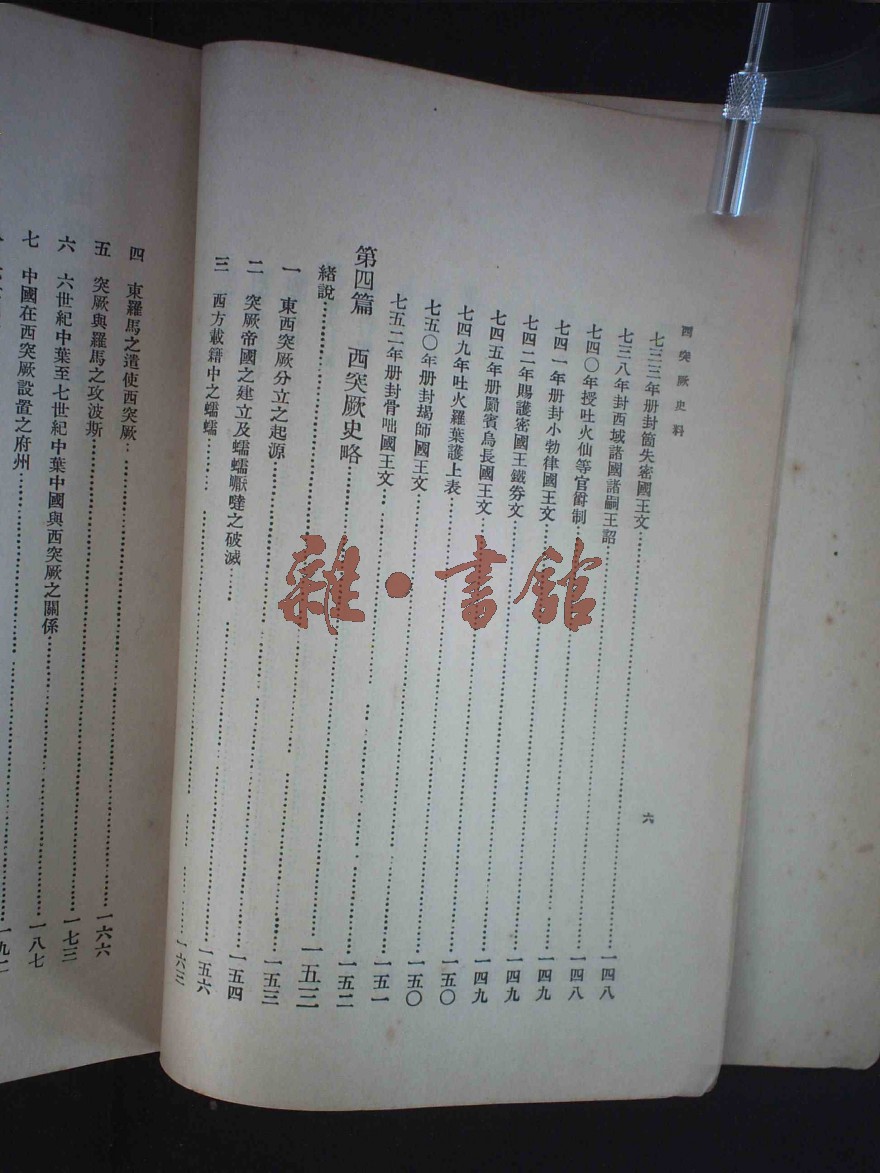 西突厥史料
六
七三三年册封箇失密國王文 一四八
七三八年封西域諸國諸嗣王詔 一四八
七四〇年授吐火仙等官爵制 一四九
七四一年册封小勃律國王文 一四九
七四二年賜護密國王鐵券文 一四九
七四五年册罽賓烏長國王文 一五〇
七四九年吐火羅葉護上表 一五〇
七五〇年册封朅師國王文 一五一
七五二年册封骨咄國王文 一五二
第四篇 西突厥史略 一五三
緒說 一五三
一 東西突厥分立之起源 一五四
二 突厥帝國之建立及蠕蠕嚈噠之破滅 一五六
三 西方載籍中之蠕蠕 一六三
四 東羅馬之遣使西突厥 一六六
五 突厥與羅馬之攻波斯 一七三
六 六世紀中葉至七世紀中葉中國與西突厥之關係 一八七
七 中國在西突厥設置之府州
雜·書館